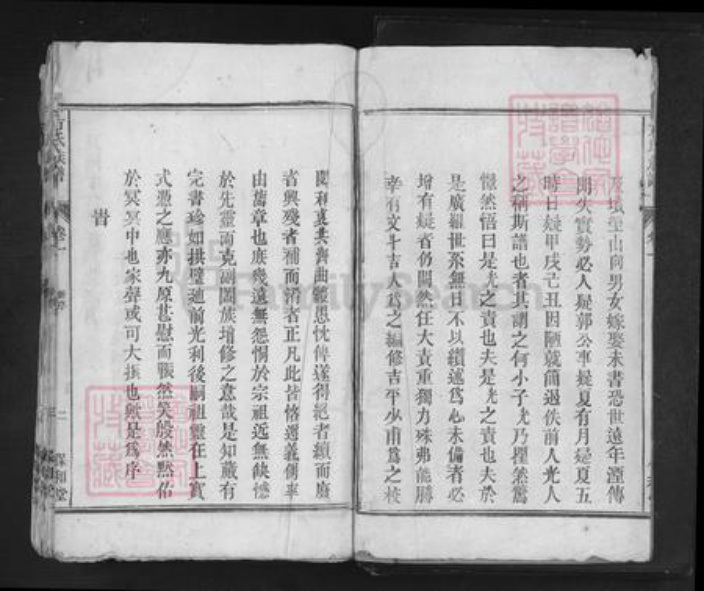 墳塋山向男女嫁娶未書恐世遠年湮傳
聞失實勢必人疑郭公事疑夏有月疑夏五
時日疑甲戌己丑因陋就簡過佚前人光人
之稱斯譜也者其謂之何小子 乃瞿然驚
惕然悟曰是 之責也夫是 之責也夫於
是廣羅世系無日不以纘述為心未備者必
增有疑者仍闕然任大責重獨力殊弗能勝
幸有文斗吉人為之編修吉平少甫為之校
閱和衷共濟曲殫思忱俾遂得絕者續而廢
者興殘者補而淆者正凡此皆恪遵義例率
由舊章也庶幾遠無怨恫於宗祖近無缺憾
於先靈而克副闔族增修之意哉是知藏有
完書珍如拱璧迪前光利後嗣祖靈在上實
式憑之應亦九原甚慰而囅然笑殷然默佑
於冥冥中也家聲或可大振也歟是為序
旹
氏族譜
卷一
二
保和堂
FamilySearch